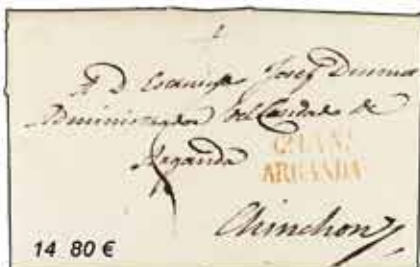 A D. Estanislao Josef
Administrador del Caudal de
Arganda
ARGANDA
Chinchon
14 80 €